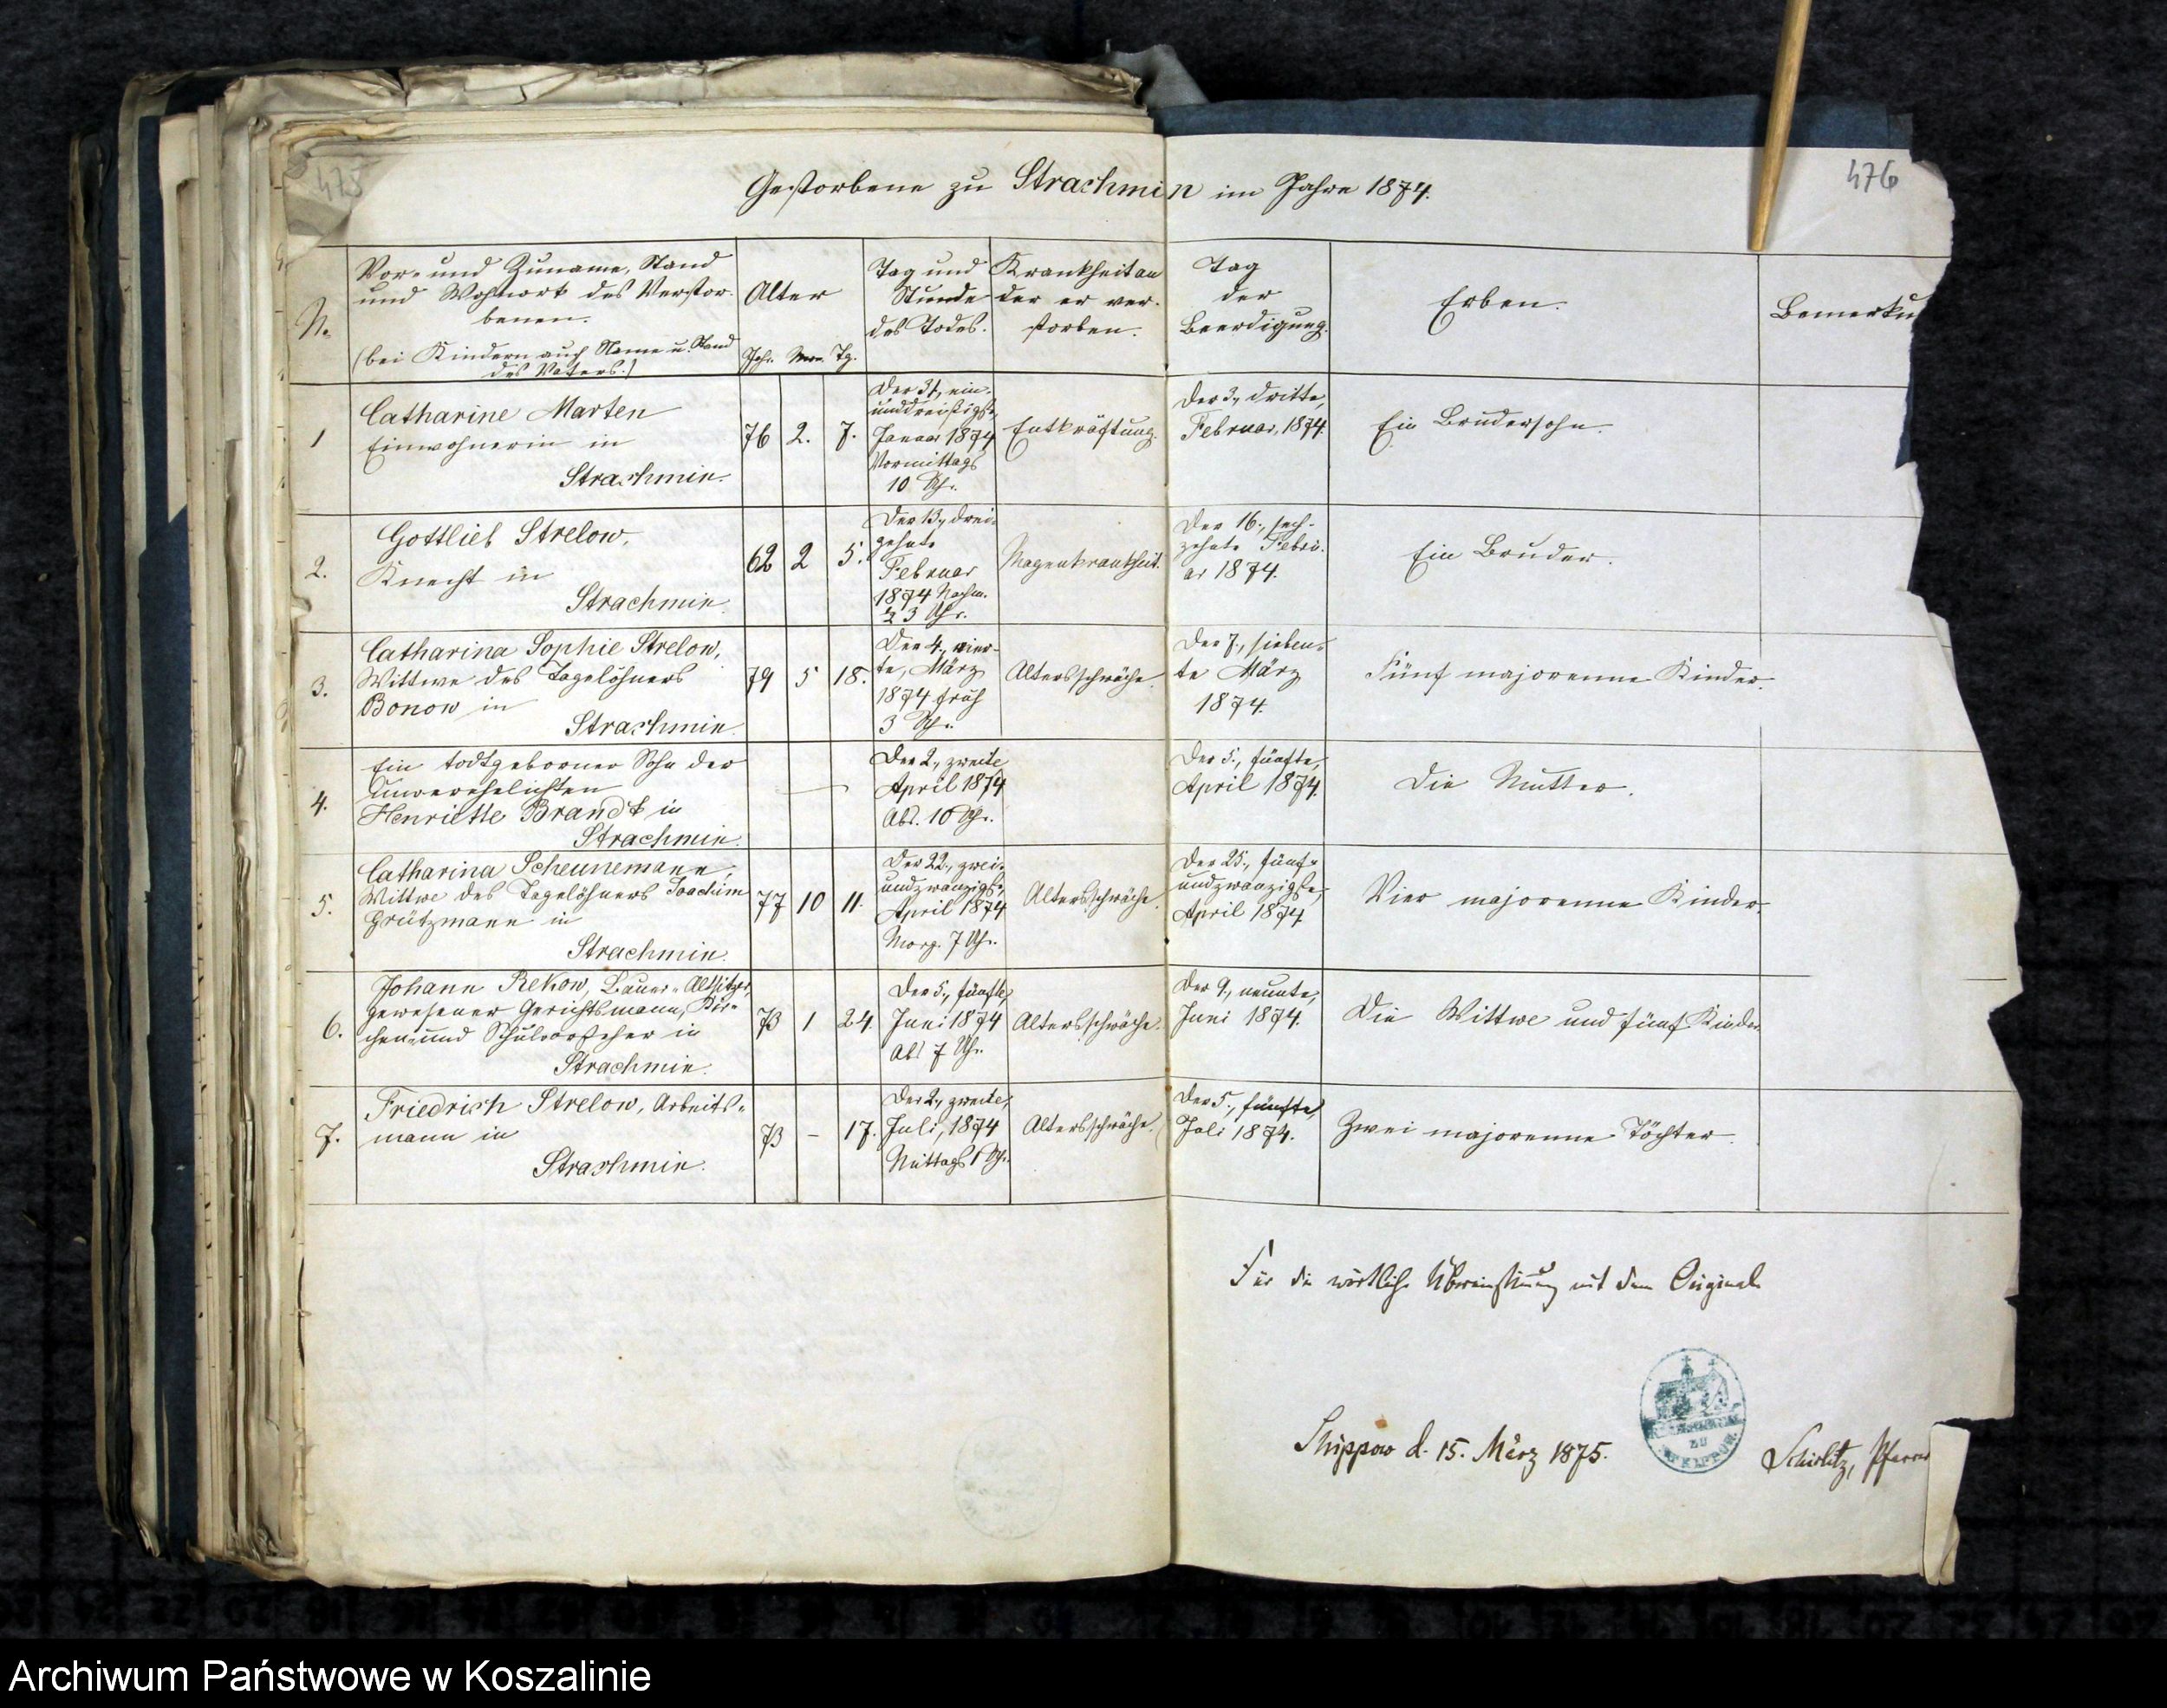 475
476
Gestorbene zu Strachmin im Jahre 1874.
N.
Vor- und Zuname, Stand
und Wohnort des Verstor-
benen.
(bei Kindern auch Name u. Stand
des Vaters.)
Alter
Jhr. Mon. Tg.
Tag und
Stunde
des Todes.
Krankheit an
der er ver-
storben.
Tag
der
Beerdigung.
Erben.
Bemerku
1
Catharine Marten
Einwohnerin in
Strachmin.
76 2. 7.
Der 31, ein-
unddreißigste,
Januar 1874
Vormittags
10 Uhr.
Entkräftung.
Der 3., dritte,
Februar, 1874.
Ein Brudersohn.
2.
Gottlieb Strelow,
Knecht in
Strachmin.
62 2 5.
Der 13., drei-
zehnte
Februar
1874 Nachm.
½ 3 Uhr.
Magenkrankheit.
Der 16., sech-
zehnte Febru-
ar 1874.
Ein Bruder.
3.
Catharina Sophie Strelow,
Wittwe des Tagelöhners
Bonow in
Strachmin.
79 5 18.
Der 4., vier-
te, März
1874 früh
3 Uhr.
Altersschwäche.
Der 7., sieben-
te März
1874.
Fünf majorenne Kinder.
4.
Ein todtgeborner Sohn der
Unverehelichten
Henriette Brandt in
Strachmin.
—
Der 2., zweite
April 1874
Abd. 10 Uhr.
Der 5., fünfte,
April 1874.
Die Mutter.
5.
Catharina Scheunemann,
Wittwe des Tagelöhners Joachim
Grützmann in
Strachmin.
77 10 11.
Der 22., zwei-
undzwanzigste,
April 1874
Morg. 7 Uhr.
Altersschwäche.
Der 25., fünf-
undzwanzigste,
April 1874
Vier majorenne Kinder.
6.
Johann Rekow, Bauer-Altsitzer,
gewesener Gerichtsmann, Kir-
chen- und Schulvorsteher in
Strachmin.
73 1 24.
Der 5., fünfte,
Juni 1874
Abd 7 Uhr.
Altersschwäche.
Der 9., neunte,
Juni 1874.
Die Wittwe und fünf Kinder
7.
Friedrich Strelow, Arbeits-
mann in
Strachmin.
73 – 17.
Der 2., zweite,
Juli, 1874
Mittags 1 Uhr.
Altersschwäche.
Der 5., fünfte,
Juli 1874.
Zwei majorenne Töchter.
Für die wörtliche Übereinstimmung mit dem Original
ZU
Schippow d. 15. März 1875.
Schirlitz, Pfarrer
Archiwum Państwowe w Koszalinie